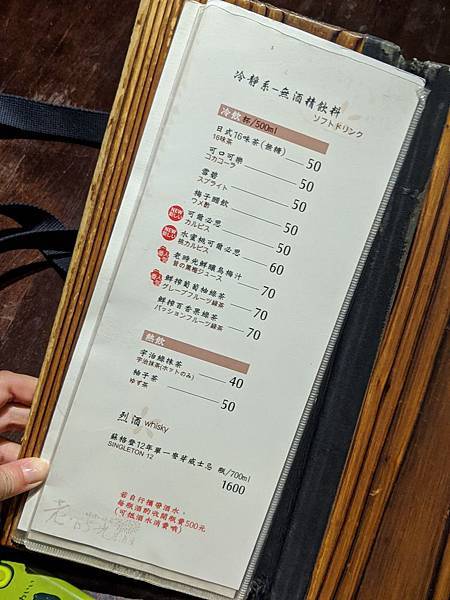 冷靜系-無酒精飲料
ソフトドリンク
冷飲 杯/500ml
日式16味茶(無糖) 50
16味茶
可口可樂 50
コカコーラ
雪碧 50
スプライト
梅子醋飲 50
ウメ酢
NEW 可爾必思 50
カルピス
NEW 水蜜桃可爾必思 60
桃カルピス
老時光鮮釀烏梅汁 70
昔の風梅ジュース
鮮榨葡萄柚綠茶 70
グレープフルーツ緑茶
鮮榨百香果綠茶 70
パッションフルーツ緑茶
熱飲
宇治綠抹茶 40
宇治抹茶(ホットのみ)
柚子茶 50
ゆず茶
烈酒 whisky
蘇格登12年單一麥芽威士忌 瓶/700ml
SINGLETON 12 1600
若自行攜帶酒水,
每瓶酒酌收開瓶費500元
(可抵酒水消費哦)